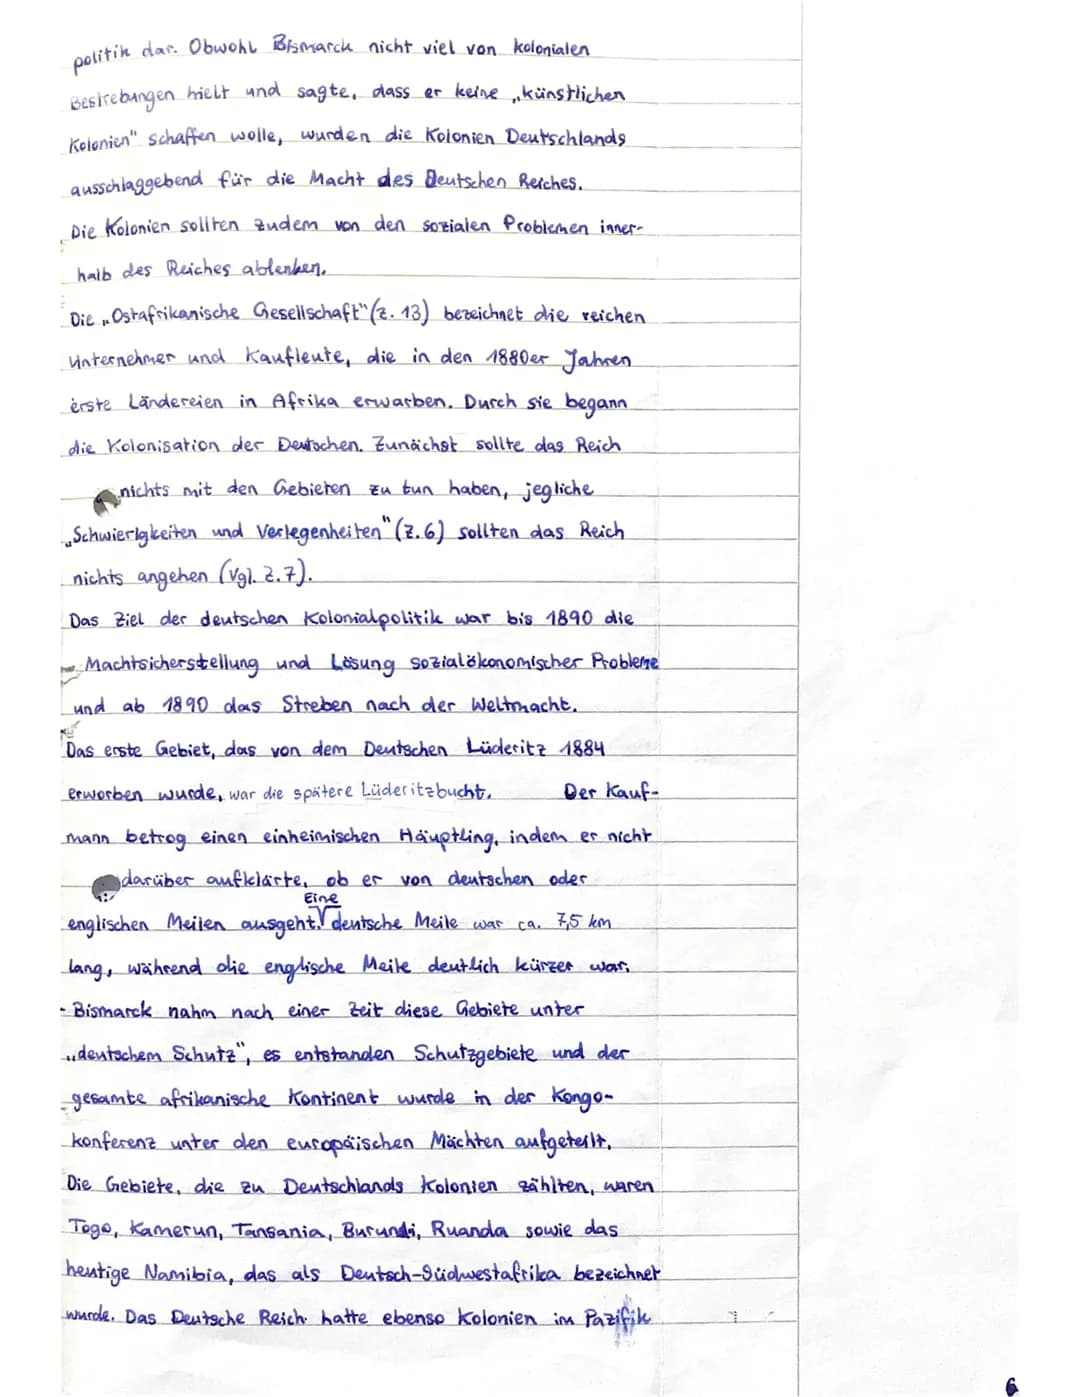 politik dar. Obwohl Bismarck nicht viel von kolonialen
Bestrebungen hielt und sagte, dass er keine „künstlichen
Kolonien" schaffen wolle, wurden die Kolonien Deutschlands
ausschlaggebend für die Macht des Deutschen Reiches.
Die Kolonien sollten zudem von den sozialen Problemen inner-
halb des Reiches ablenken.
Die „Ostafrikanische Gesellschaft" (Z. 13) bezeichnet die reichen
Unternehmer und Kaufleute, die in den 1880er Jahren
erste Ländereien in Afrika erwarben. Durch sie begann
die Kolonisation der Deutschen. Zunächst sollte das Reich
nichts mit den Gebieten zu tun haben, jegliche
„Schwierigkeiten und Verlegenheiten" (Z. 6) sollten das Reich
nichts angehen (Vgl. Z. 7).
Das Ziel der deutschen Kolonialpolitik war bis 1890 die
Machtsicherstellung und Lösung sozialökonomischer Probleme
und ab 1890 das Streben nach der Weltmacht.
Das erste Gebiet, das von dem Deutschen Lüderitz 1884
erworben wurde, war die spätere Lüderitzbucht. Der Kauf-
mann betrog einen einheimischen Häuptling, indem er nicht
darüber aufklärte, ob er von deutschen oder
englischen Meilen ausgeht. Eine deutsche Meile war ca. 7,5 km
lang, während die englische Meile deutlich kürzer war.
Bismarck nahm nach einer Zeit diese Gebiete unter
„deutschem Schutz", es entstanden Schutzgebiete und der
gesamte afrikanische Kontinent wurde in der Kongo-
konferenz unter den europäischen Mächten aufgeteilt.
Die Gebiete, die zu Deutschlands Kolonien zählten, waren
Togo, Kamerun, Tansania, Burundi, Ruanda sowie das
heutige Namibia, das als Deutsch-Südwestafrika bezeichnet
wurde. Das Deutsche Reich hatte ebenso Kolonien im Pazifik
6